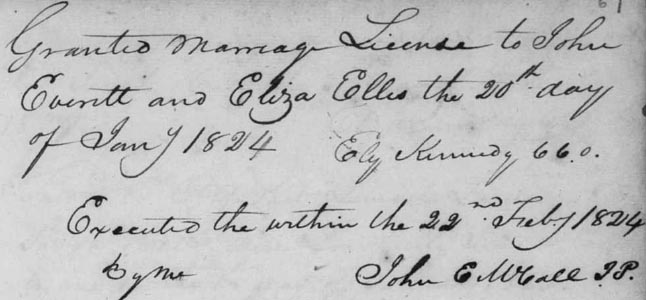 61
Granted Marriage License to John
Everitt and Eliza Ellis the 20th day
of Jany 1824 Ely Kennedy CCO.
Executed the within the 22nd Feby 1824
by me John E McCall JP.